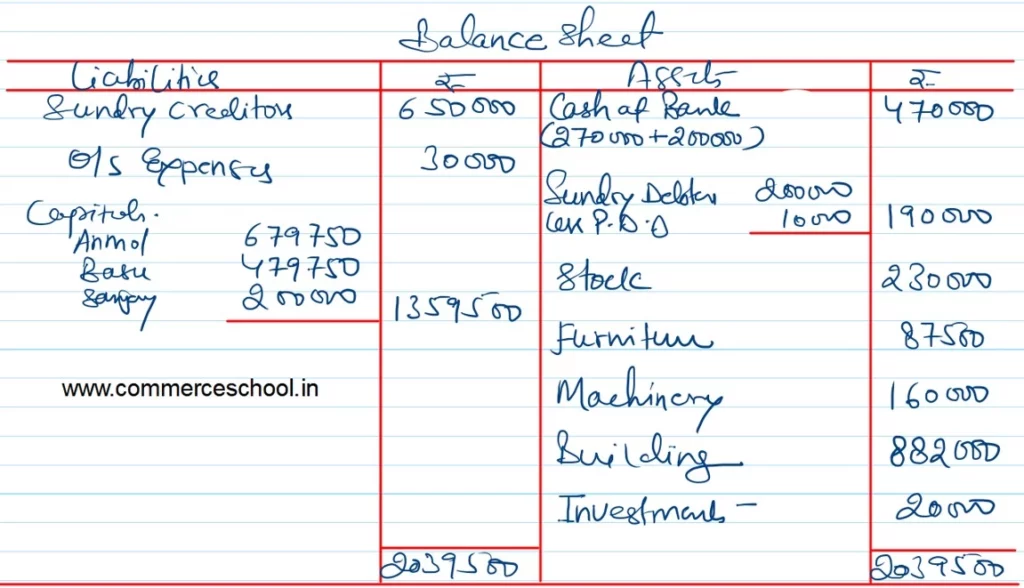 Balance sheet
Liabilities ₹ Assets ₹
Sundry Creditors 650000 Cash at Bank 470000
(270000+200000)
O/s Expenses 30000
Sundry Debtors 200000
Less P.D.D 10000 190000
Capitals.
Anmol 679750
Basu 479750
Sanjay 200000 1359500
Stock 230000
Furniture 87500
Machinery 160000
Building 882000
Investments - 20000
2039500 2039500
www.commerceschool.in